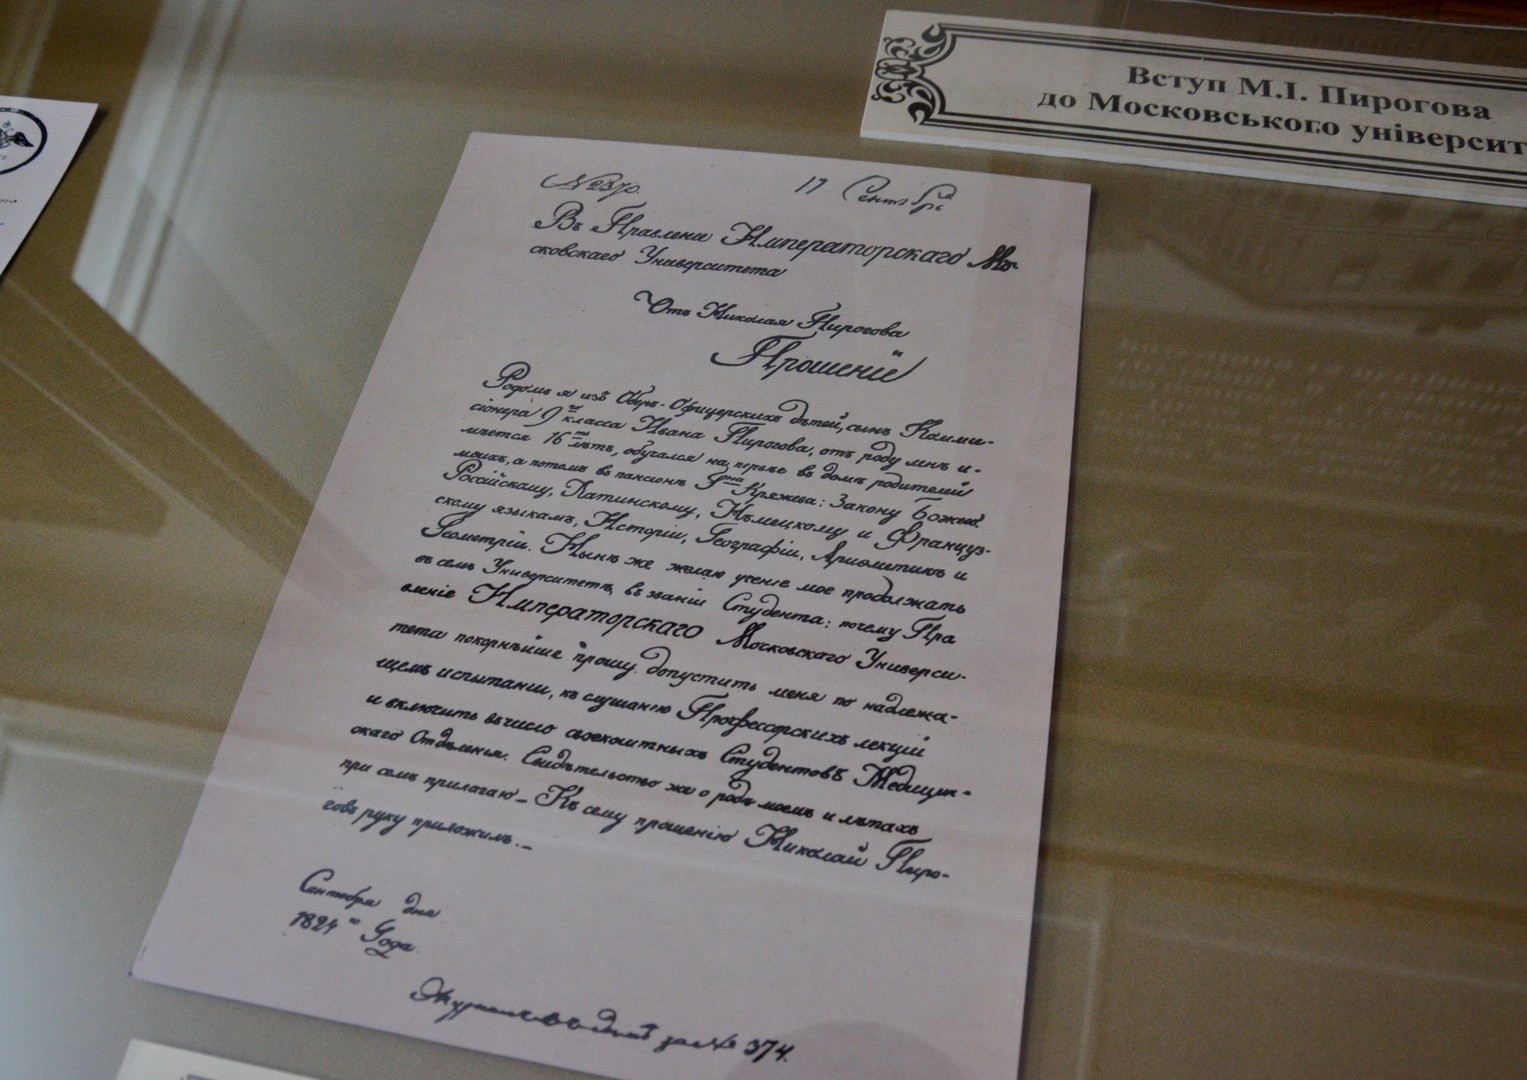 Вступ М.І. Пирогова
до Московського університ
№ 2370. 17 Сентября
Въ Правленіе Императорскаго Мо
сковскаго Университета
Отъ Николая Пирогова
Прошеніе
Родомъ я изъ Оберъ-Офицерскихъ дѣтей, сынъ Комми-
сіонера 9го класса Ивана Пирогова, отъ роду мнѣ и-
мѣется 16ть лѣтъ, обучался на перьвѣ въ домѣ родителей
моихъ, а потомъ въ пансіонѣ Гдна Кряжева: Закону Божею.
Россійскому, Латинскому, Нѣмецкому и Француз-
скому языкамъ, Исторіи, Географіи, Ариѳметикѣ и
Геометріи. Нынѣ же желаю ученіе мое продолжать
въ семъ Университетѣ, въ званіи Студента: почему Пра
вленіе Императорскаго Московскаго Универси-
тета покорнѣйше прошу допустить меня по надлежа-
щемъ испытаніи, къ слушанію Профессорскихъ лекцій
и включить въ число своекоштныхъ Студентовъ Медицин-
скаго Отдѣленія. Свидѣтельство же о родѣ моемъ и лѣтахъ
при семъ прилагаю_ Къ сему прошенію Николай Пиро-
говъ руку приложилъ._
Сентября дня
1824го Года
за № 374.